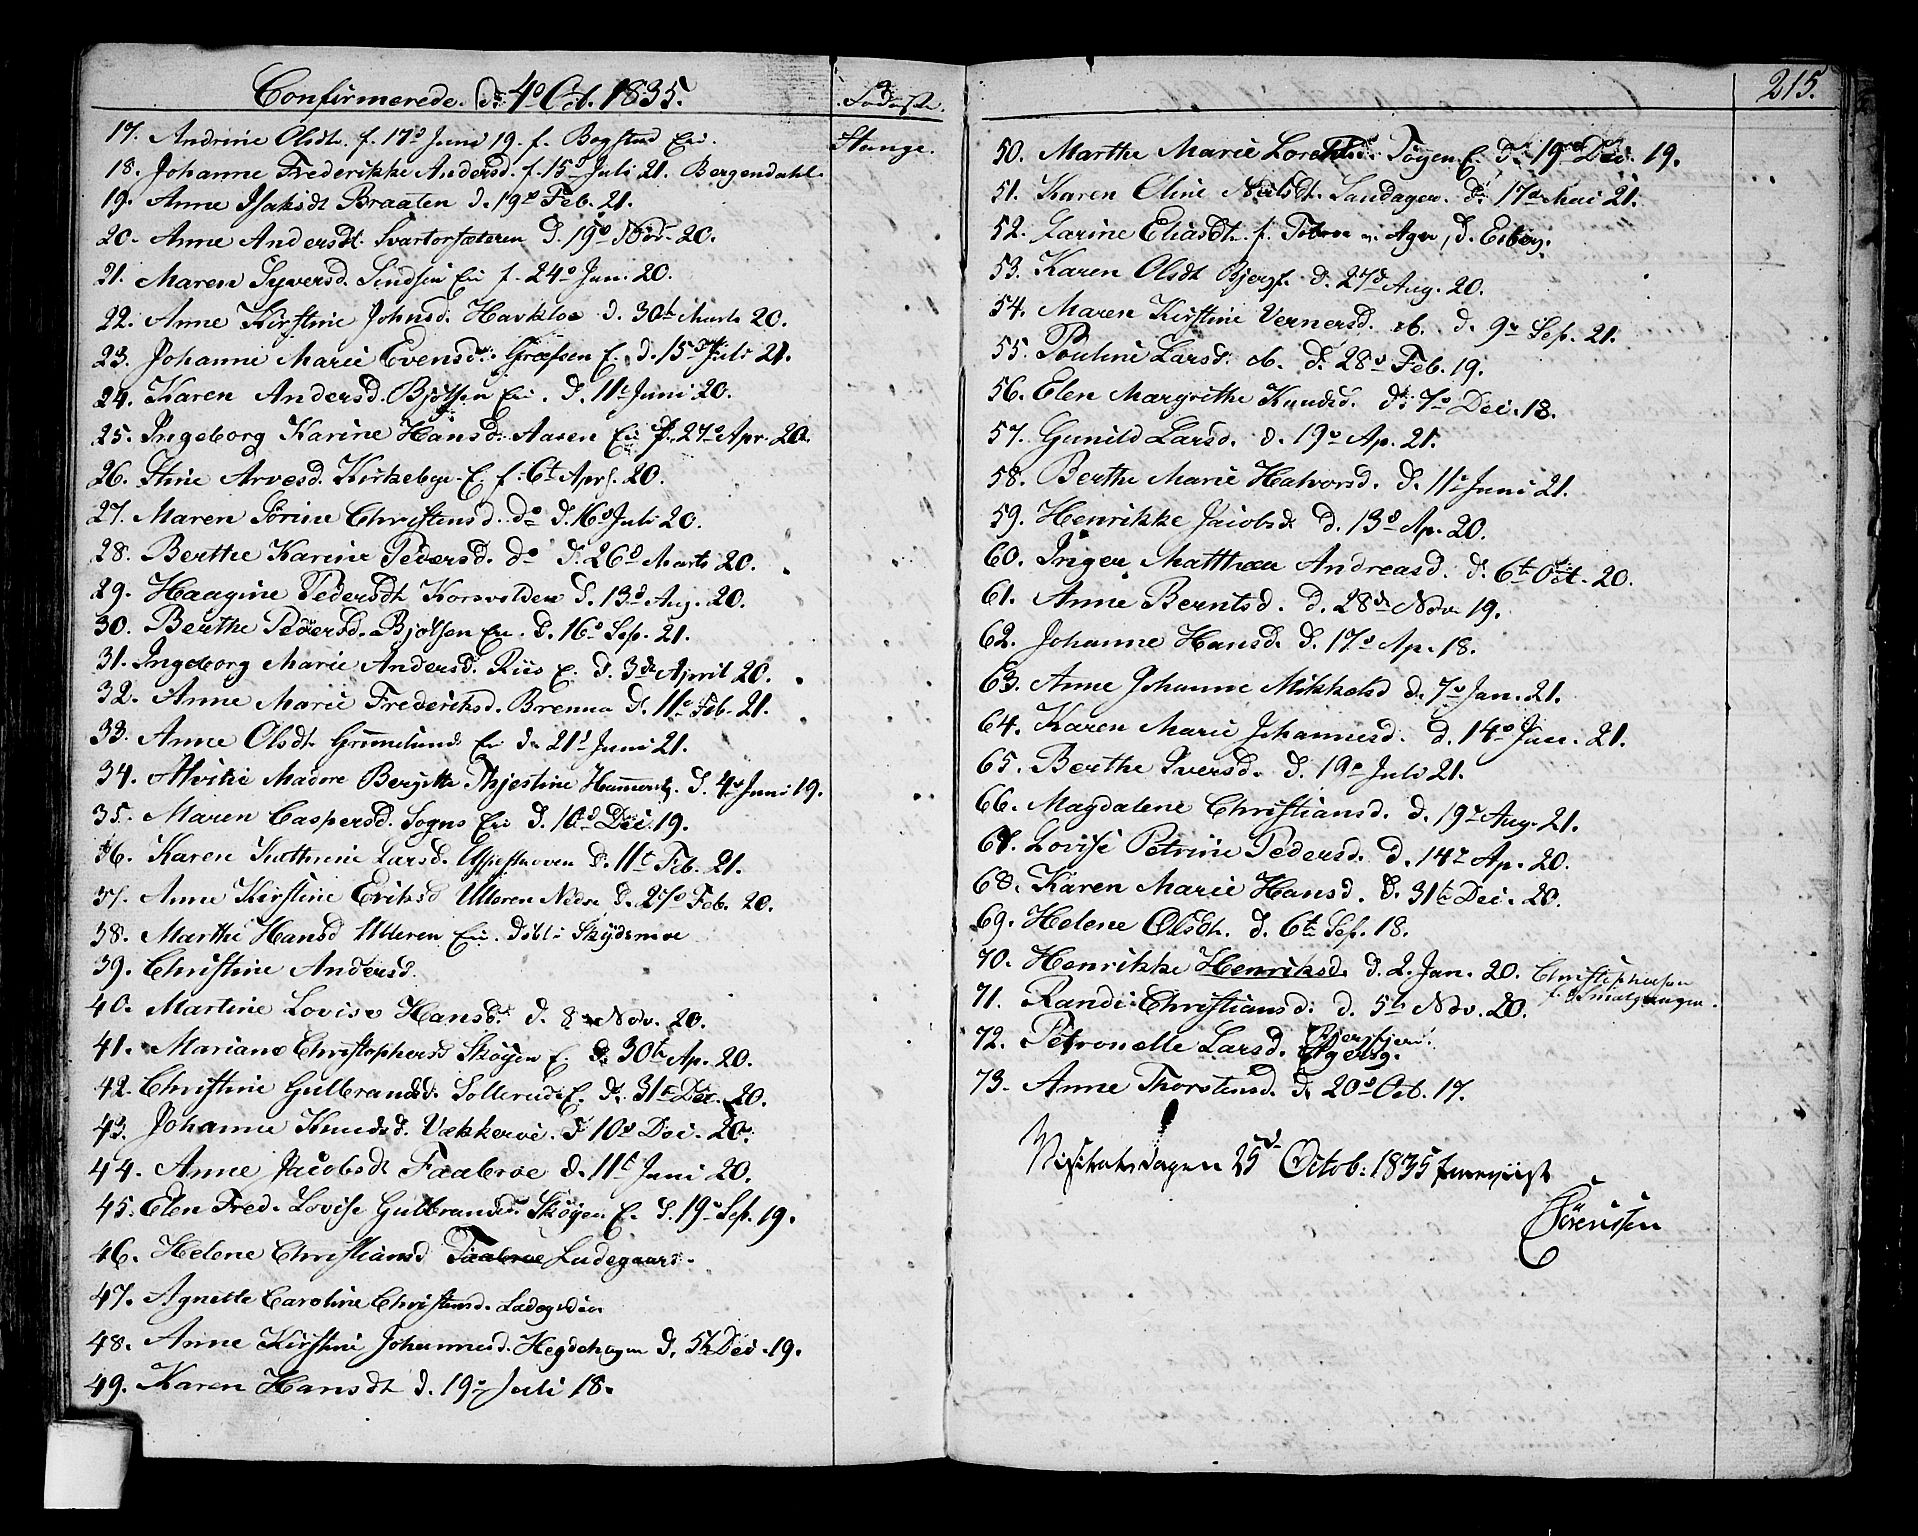 Confirmerede d: 4º Oct. 1835.
17. Andrine Olsdt. f. 17º Juni 19. f. Bogstad Ei. Stange.
18. Johanne Frederikke Andersd. f. 15d Juli 21. Bergendahl
19. Anne Isaksdt Braaten d. 19º Feb. 21.
20. Anne Andersdt. Svartorsæteren D. 19º Nov. 20.
21. Maren Syversd. Ei f. 24º Jan. 20.
22. Anne Kirstine Johnsd. Havkloe d. 30t Marts 20.
23. Johanne Marie Evensd. Græfsen E. d. 15d Juli 21.
24. Karen Andersd. Bjølsen Ei. D. 11t Juni 20.
25. Ingeborg Karine Hansd: Aasen Ei f. 27º Apr. 20.
26. Stine Arvesd. Kirkebye E. f. 6t Apr. 20.
27. Maren Sørine Christensd. dº D. 16d Juli 20.
28. Berthe Karine Pedersd. dº D. 26d Marts 20.
29. Haagine Pedersdt Korsvolden D. 13d Aug. 20.
30. Berthe Pedersd. Bjølsen Ei. D. 16º Sep. 21.
31. Ingeborg Marie Andersd. Riis E. d. 3d April 20.
32. Anne Marie Frederiksd. Brenna D. 11º Feb. 21.
33. Anne Olsdt. Grimelund Ei d. 21d Juni 21.
34. Madore Bergitte D. 4º Juni 19.
35. Maren Caspersd. Sogns Ei D. 10d Dec. 19.
36. Karen Kathrine Larsd. D. 11t Feb. 21.
37. Anne Kirstine Eriksd Ulleren Nedre D. 27º Feb. 20.
38. Marthe Hansd Ulleren Ei. Skydsmoe
39. Christine Andersd.
40. Martine Lovise Hansd. d. 8 Nov. 20.
41. Mariane Christophersd Skøyen E. D. 30t Ap. 20.
42. Christine Gulbrandsd. Sollerud E. d. 31t Dec. 20.
43. Johanne Knudsd. Vækkerøe. D 10d Dec. 20.
44. Anne Jacobsdt Faabroe d. 11t Juni 20.
45. Elen Fred. Lovise Gulbrandsd. Skøyen E. D. 19º Sep. 19.
46. Helene Christiansd Faabroe Ladegaard.
47. Agnette Caroline Christensd.
48. Anne Kirstine Johannesd. Hegdehagen d. 5t Dec. 19.
49. Karen Hansdt d. 19º Juli 18.
215.
50. Marthe Marie Tøyen E. d. 19 Dec. 19.
51. Karen Oline Nielsdt. Sandager. d: 17d Mai 21.
52. Karine Eliasdt. f.
53. Karen Olsdt d. 27d Aug. 20.
54. Maren Kirstine Vernersd. d. 9º Sep. 21.
55. Pouline Larsd. D. 28d Feb. 19.
56. Elen Margrethe Knudsd. D: 7º Dec. 18.
57. Gunild Larsd. d. 19º Ap. 21.
58. Berthe Marie Halvorsd. D. 11t Juni 21.
59. Henrikke Jacobsd D. 13d Ap. 20.
60. Inger Matthea Andreasd. d. 6t Oct. 20.
61. Anne Berntsd. d. 28d Nov 19.
62. Johanne Hansd. D. 17º Ap. 18.
63. Anne Johanne Mikkelsd d. 7º Jan. 21.
64. Karen Marie Johannesd. d. 14º Jan. 21.
65. Berthe Iversd. D. 19º Juli 21.
66. Magdalene Christiansd. d. 19º Aug. 21.
67. Lovise Petrine Pedersd. D. 14º Ap. 20.
68. Karen Marie Hansd. D. 31t Dec. 20.
69. Helene Olsdt. D. 6t Sep. 18.
70. Henrikke Henriksd. D. 2. Jan. 20. Christophersen
71. Randi Christiansd: d. 5t Nov. 20.
72. Petronelle Larsd.
73. Anne Thorstensd. D. 20d Oct. 17.
25d Octob: 1835
Sørenssen